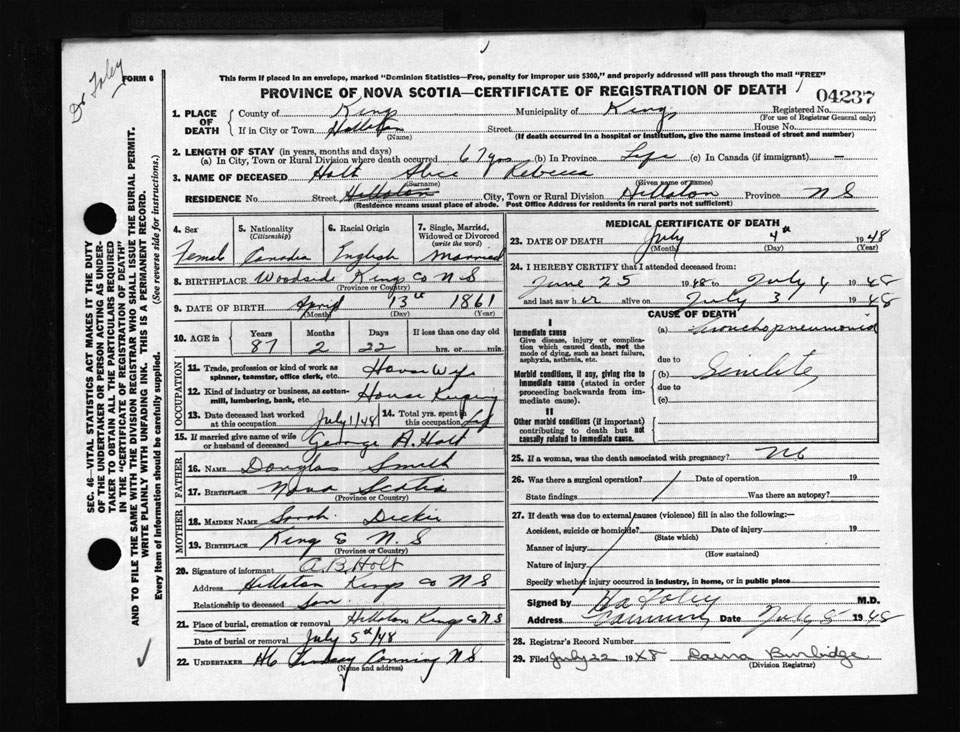 Dr Foley
FORM 6
This form if placed in an envelope, marked "Dominion Statistics—Free, penalty for improper use $300," and properly addressed will pass through the mail "FREE"
PROVINCE OF NOVA SCOTIA—CERTIFICATE OF REGISTRATION OF DEATH
04237
1. PLACE OF DEATH
County of Kings Municipality of Kings Registered No.
(For use of Registrar General only)
If in City or Town Street House No.
(Name) (If death occurred in a hospital or institution, give the name instead of street and number)
2. LENGTH OF STAY (in years, months and days)
(a) In City, Town or Rural Division where death occurred 67 yrs (b) In Province Life (c) In Canada (if immigrant) —
3. NAME OF DECEASED Holt Alice Rebecca
(Surname) (Given name or names)
RESIDENCE No Street Hillaton City, Town or Rural Division Hillaton Province N S
(Residence means usual place of abode. Post Office Address for residents in rural parts not sufficient)
4. Sex 5. Nationality (Citizenship) 6. Racial Origin 7. Single, Married, Widowed or Divorced (write the word)
Female English Married
8. BIRTHPLACE Woodside Kings Co N S
(Province or Country)
9. DATE OF BIRTH April 13th 1861
(Month) (Day) (Year)
10. AGE in Years Months Days If less than one day old
87 2 22 hrs. or min.
OCCUPATION
11. Trade, profession or kind of work as spinner, teamster, office clerk, etc. House Wife
12. Kind of industry or business, as cotton-mill, lumbering, bank, etc. House Keeping
13. Date deceased last worked at this occupation July 1/48 14. Total yrs. spent in this occupation Life
15. If married give name of wife or husband of deceased George A. Holt
FATHER
16. NAME Douglas Smith
17. BIRTHPLACE Nova Scotia
(Province or Country)
MOTHER
18. MAIDEN NAME Sarah Dickie
19. BIRTHPLACE N. S
(Province or Country)
20. Signature of informant A. B. Holt
Address Hillaton Kings Co N S
Relationship to deceased Son
21. Place of burial, cremation or removal Hillaton Kings Co N S
Date of burial or removal July 5th/48
22. UNDERTAKER Lindsay Canning N S.
(Name and address)
MEDICAL CERTIFICATE OF DEATH
23. DATE OF DEATH July 4th 1948
(Month) (Day)
24. I HEREBY CERTIFY that I attended deceased from:
June 25 1948 to July 4 1948
and last saw her alive on July 3 1948
CAUSE OF DEATH
I
Immediate cause (a) Bronchopneumonia
Give disease, injury or complication which caused death, not the mode of dying, such as heart failure, asphyxia, asthenia, etc.
due to
Morbid conditions, if any, giving rise to immediate cause (stated in order proceeding backwards from immediate cause).
(b) Senility
due to
(c)
II
Other morbid conditions (if important) contributing to death but not causally related to immediate cause.
25. If a woman, was the death associated with pregnancy? No
26. Was there a surgical operation? Date of operation 19
State findings Was there an autopsy?
27. If death was due to external causes (violence) fill in also the following:—
Accident, suicide or homicide? Date of injury 19
(State which)
Manner of injury
(How sustained)
Nature of injury
Specify whether injury occurred in industry, in home, or in public place
Signed by Foley M.D.
Address Canning Date July 5 1948
28. Registrar's Record Number
29. Filed July 22 1948 Burbidge
(Division Registrar)
SEC. 46—VITAL STATISTICS ACT MAKES IT THE DUTY
OF THE UNDERTAKER OR PERSON ACTING AS UNDER-
TAKER TO OBTAIN ALL THE PARTICULARS REQUIRED
IN THE "CERTIFICATE OF REGISTRATION OF DEATH"
AND TO FILE THE SAME WITH THE DIVISION REGISTRAR WHO SHALL ISSUE THE BURIAL PERMIT.
WRITE PLAINLY WITH UNFADING INK. THIS IS A PERMANENT RECORD.
Every item of information should be carefully supplied. (See reverse side for instructions.)